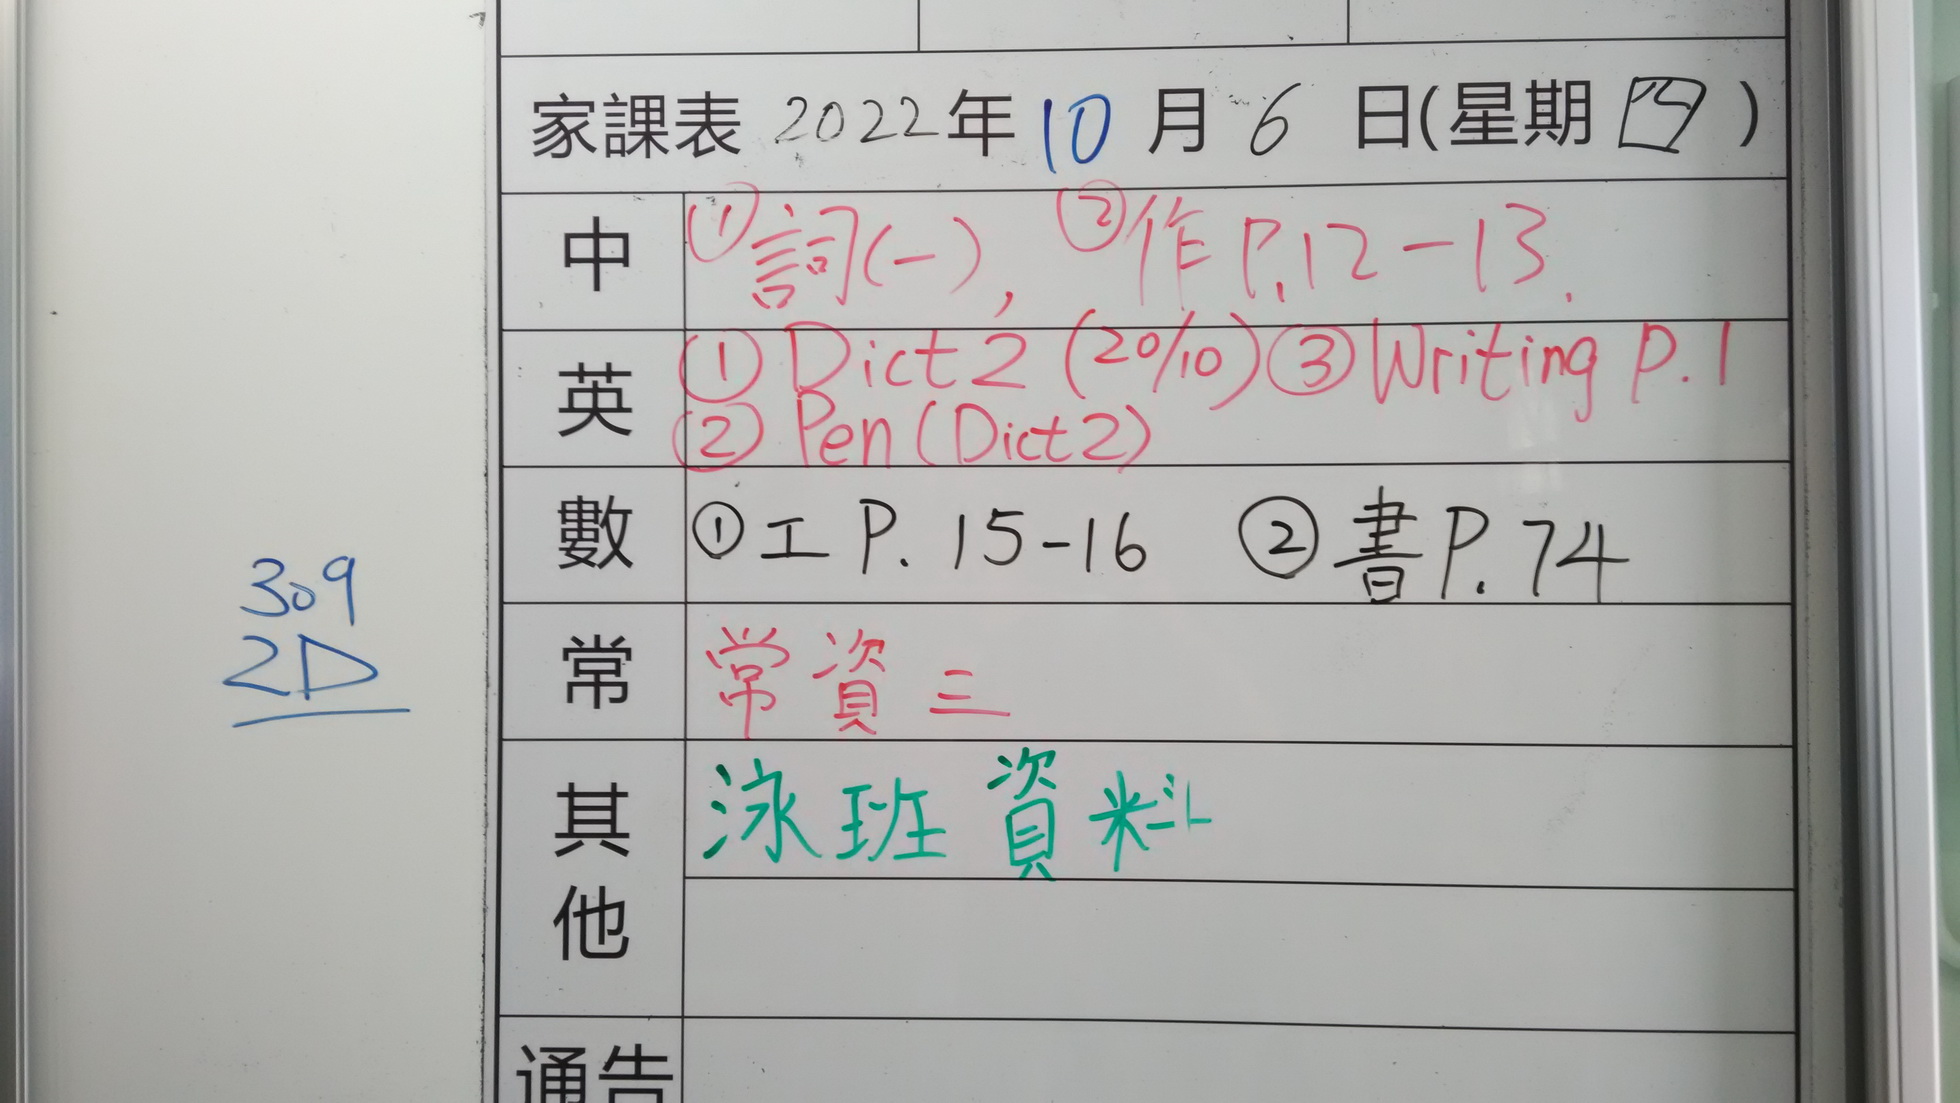 家課表 2022年10月6日(星期四)
中 ①詞(一), ②作P.12-13.
英 ①Dict 2 (20/10) ③Writing P.1
②Pen (Dict 2)
數 ①工P.15-16 ②書P.74
309
2D
常 常資三
其他 泳班資料
通告